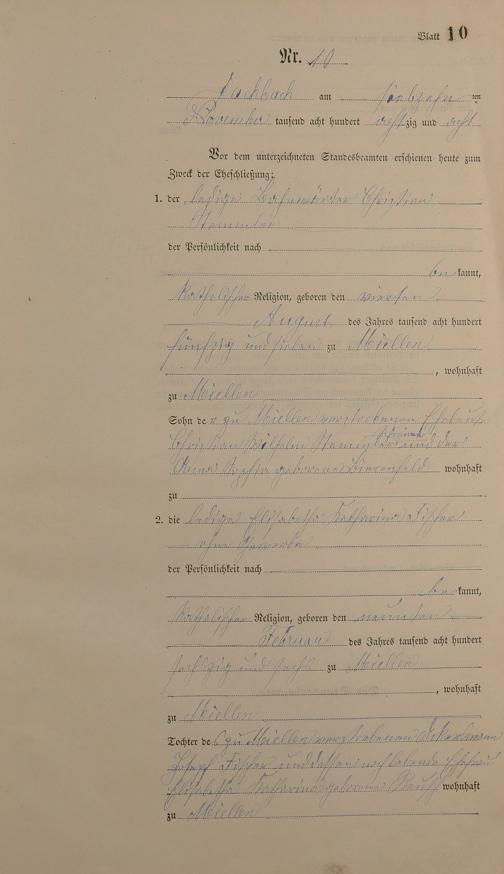 Blatt 10
Nr. 10
Fachbach am siebzehn ten
November tausend acht hundert achtzig und acht
Vor dem unterzeichneten Standesbeamten erschienen heute zum
Zweck der Eheschließung:
1. der ledige Bahnwärter Christian
Stemmler
der Persönlichkeit nach
bekannt,
katholischer Religion, geboren den vierten
August des Jahres tausend acht hundert
fünfzig und sieben zu Miellen
, wohnhaft
zu Miellen
Sohn der zu Miellen verstorbenen Eheleute
Christian Wilhelm Stemmler und der
Anna Sophia geborene wohnhaft
zu
2. die ledige Elisabetha Katharina Fischer
ohne Gewerbe
der Persönlichkeit nach
bekannt,
katholischer Religion, geboren den neunten
Februar des Jahres tausend acht hundert
sechszig und sechs zu Miellen
, wohnhaft
zu Miellen
Tochter des zu Miellen verstorbenen
Josef Fischer und dessen noch lebende Ehefrau
Elisabetha Katharina geborene wohnhaft
zu Miellen